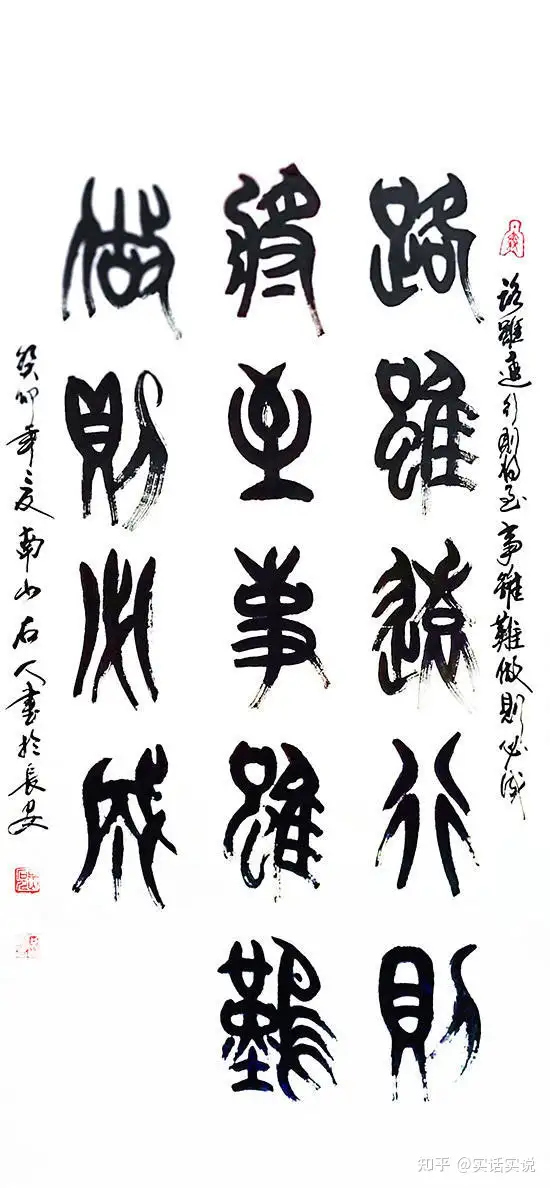 路雖遠行則將至事雖難做則必成
路雖遠行則
將至事雖難
做則必成
癸卯年之夏南山石人書於長安
知乎 @实话实说